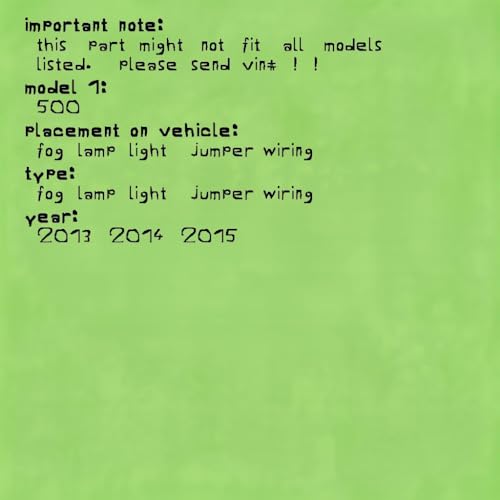 important note:
this part might not fit all models
listed. please send vin# ! !
model 1:
500
placement on vehicle:
fog lamp light jumper wiring
type:
fog lamp light jumper wiring
year:
2013 2014 2015